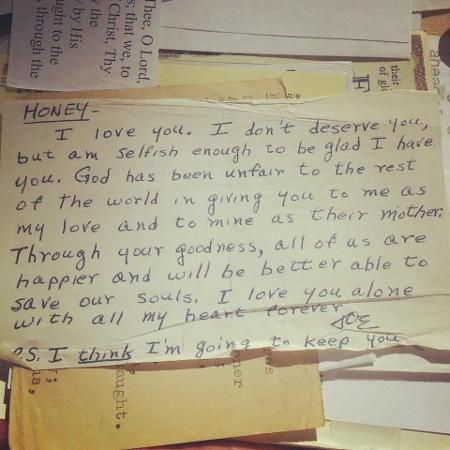 Thee, O Lord,
s; that we, to
Christ, Thy
y by His
ught to the
through the
their
of glo
HONEY-
I love you. I don't deserve you,
but am selfish enough to be glad I have
you. God has been unfair to the rest
of the world in giving you to me as
my love and to mine as their mother.
Through your goodness, all of us are
happier and will be better able to
save our souls. I love you alone
with all my heart forever
JOE
P.S. I think I'm going to keep you
aught.